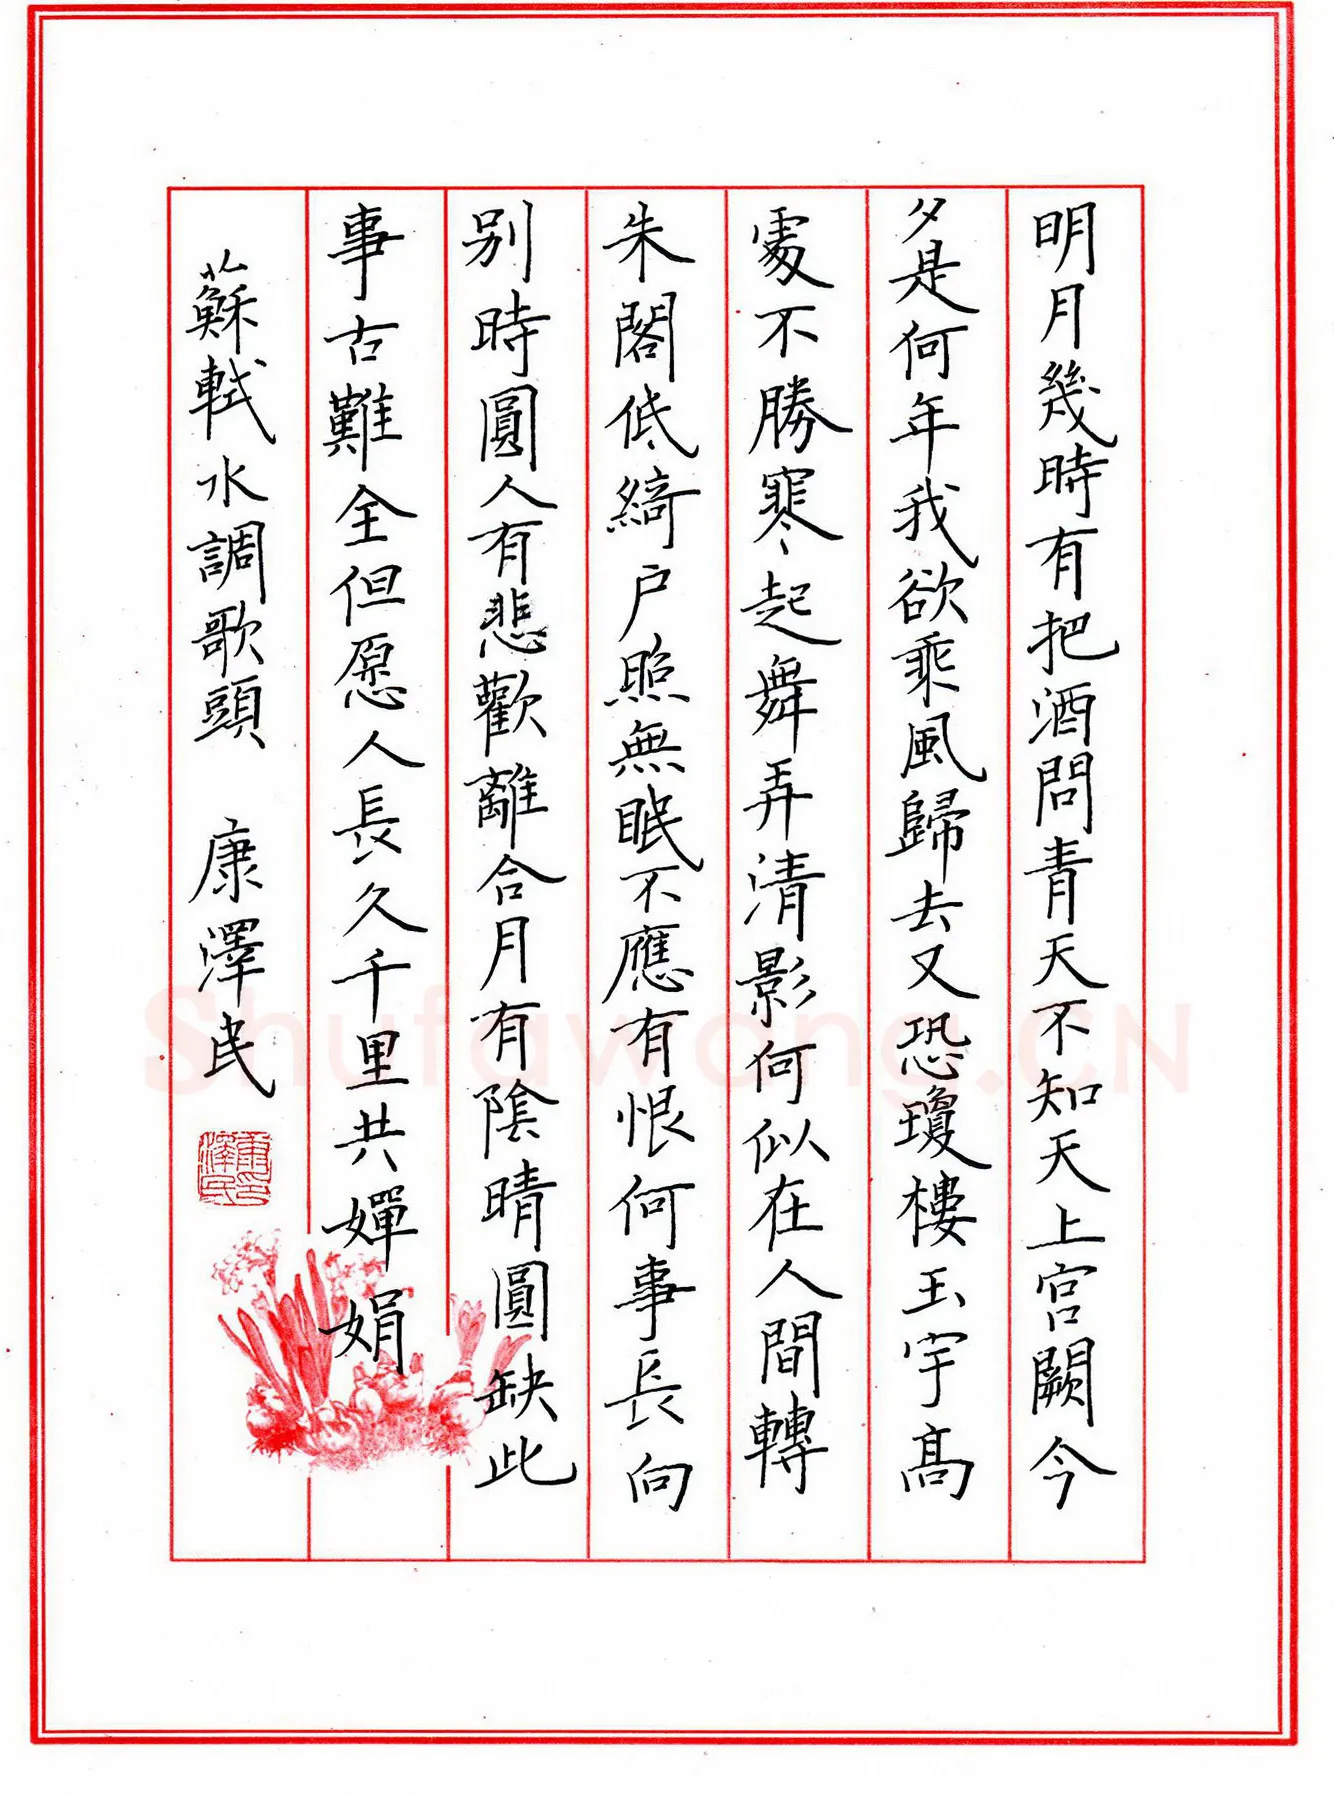 明月幾時有把酒問青天不知天上宮闕今
夕是何年我欲乘風歸去又恐瓊樓玉宇高
處不勝寒起舞弄清影何似在人間轉
朱閣低綺户照無眠不應有恨何事長向
别時圓人有悲歡離合月有陰晴圓缺此
事古難全但愿人長久千里共嬋娟
蘇軾水調歌頭 康澤民
康澤民印
Shufawang.CN